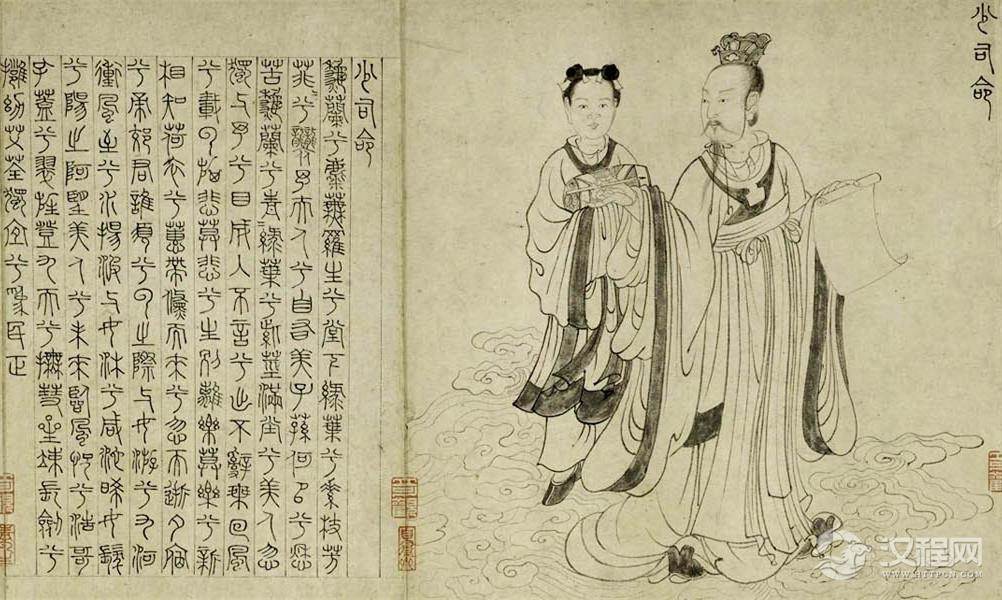 少司命
少司命
龝蘭兮麋蕪羅生兮堂下綠葉兮素枝芳
菲菲兮襲予夫人兮自有美子蓀何以兮愁
苦龝蘭兮青青綠葉兮紫莖滿堂兮美人忽
獨与予兮目成入不言兮出不辭乘回風
兮載雲旗悲莫悲兮生別離樂莫樂兮新
相知荷衣兮蕙帶儵而來兮忽而逝夕宿
兮帝郊君誰須兮雲之際与女游兮九河
衝風至兮水揚波与女沐兮咸池晞女髮
兮陽之阿望美人兮未來臨風怳兮浩哥
孔蓋兮翠旌登九天兮撫彗星竦長劍兮
擁幼艾荃獨宜兮為民正
汉程网
WWW.HTTPCN.COM